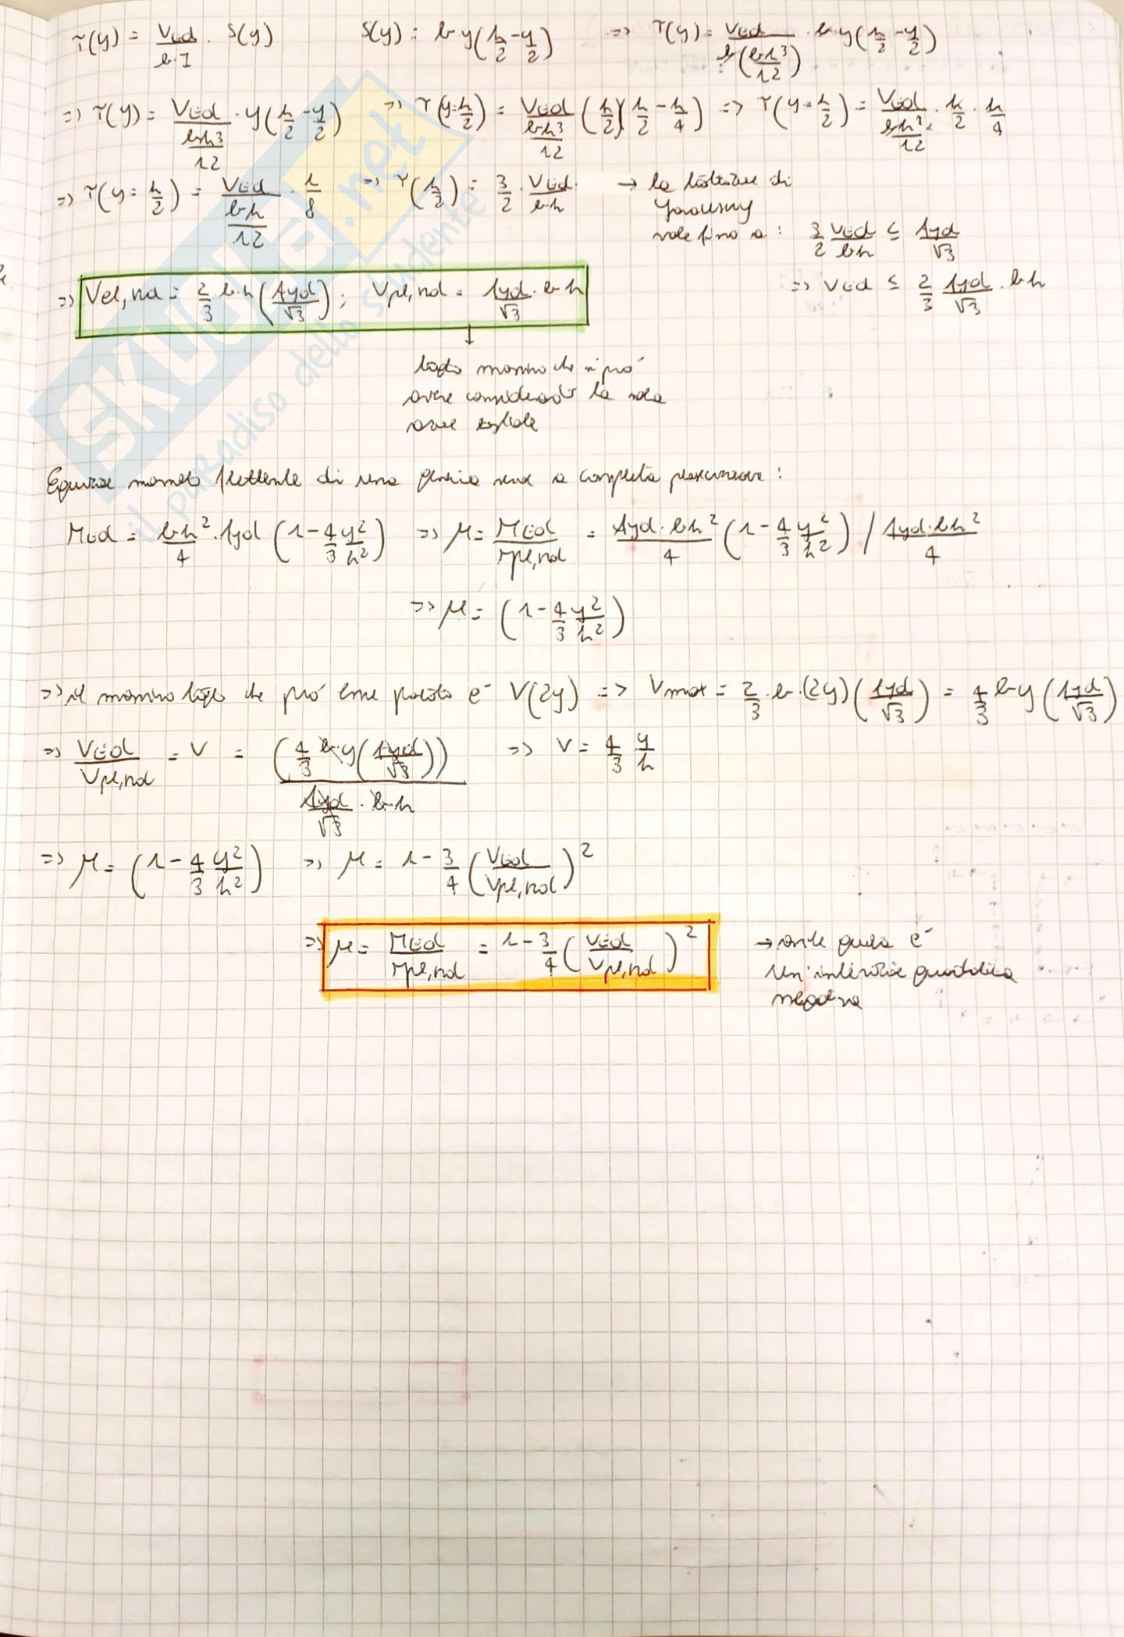 τ(y) = VEd/(b·I) · S(y)   S(y) : b y (h/2 - y/2)   => τ(y) = VEd/(b(bh³/12)) · b y (h/2 - y/2)
=> τ(y) = VEd/(bh³/12) · y (h/2 - y/2)   => τ(y=h/2) = VEd/(bh³/12) (h/2)(h/2 - h/4) => τ(y=h/2) = VEd/(bh³/12) · h/2 · h/4
=> τ(y=h/2) = VEd/(bh/12) · 1/8   => τ(h/2) = 3/2 · VEd/(bh)   → la trattazione di
Jourawsky
vale fino a : 3/2 VEd/(bh) ≤ fyd/√3
=> VEd ≤ 2/3 fyd/√3 · bh
=> Vel,Rd = 2/3 b·h (fyd/√3) ; Vpl,Rd = fyd/√3 · b·h
taglio massimo che si può
avere considerando la sola
azione tagliante
Equazione momento flettente di una generica sezione a completa plasticizzazione :
MEd = bh²/4 · fyd (1 - 4/3 y²/h²)   => μ = MEd/Mpl,Rd = fyd·bh²/4 (1 - 4/3 y²/h²) / fyd·bh²/4
=> μ = (1 - 4/3 y²/h²)
=> il massimo taglio che può essere portato è V(2y) => Vmax = 2/3 · b·(2y)(fyd/√3) = 4/3 b y (fyd/√3)
=> VEd/Vpl,Rd = V = (4/3 b y (fyd/√3))/(fyd/√3 · b·h)   => V = 4/3 y/h
=> μ = (1 - 4/3 y²/h²)   => μ = 1 - 3/4 (VEd/Vpl,Rd)²
=> μ = MEd/Mpl,Rd = 1 - 3/4 (VEd/Vpl,Rd)²   → anche questa è
un'interazione quadratica
negativa
SKUOLA.net
il paradiso dello studente